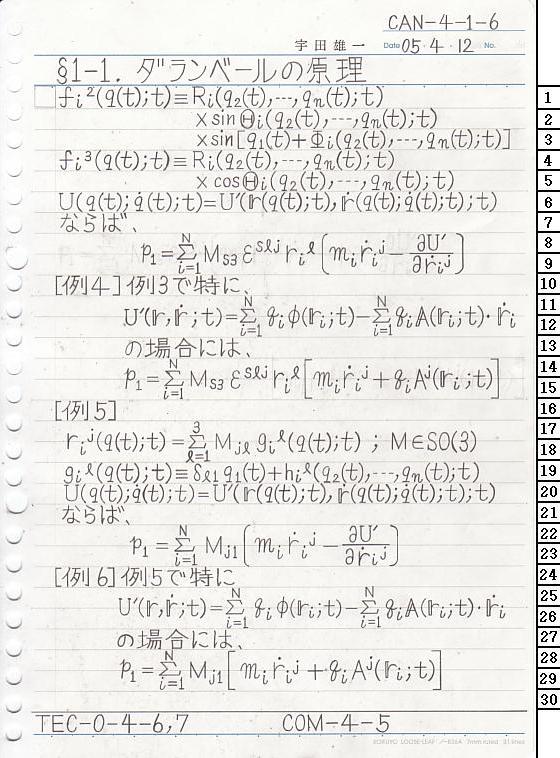 CAN-4-1-6
宇田雄一 Date 05・4・12 No.
§1-1. ダランベールの原理
fᵢ²(q(t);t)≡Rᵢ(q₂(t),---,qₙ(t);t)
×sinΘᵢ(q₂(t),---,qₙ(t);t)
×sin[q₁(t)+Φᵢ(q₂(t),---,qₙ(t);t)]
fᵢ³(q(t);t)≡Rᵢ(q₂(t),---,qₙ(t);t)
×cosΘᵢ(q₂(t),---,qₙ(t);t)
U(q(t);q̇(t);t)=U′(𝕣(q(t);t),𝕣̇(q(t);q̇(t);t);t)
ならば、
p₁=Σ_{i=1}^{N} M_{s3} ε^{slj} rᵢˡ [mᵢṙᵢʲ-∂U′/∂ṙᵢʲ]
[例4]例3で特に、
U′(𝕣,𝕣̇;t)=Σ_{i=1}^{N} qᵢφ(𝕣ᵢ;t)-Σ_{i=1}^{N} qᵢ𝔸(𝕣ᵢ;t)・𝕣̇ᵢ
の場合には、
p₁=Σ_{i=1}^{N} M_{s3} ε^{slj} rᵢˡ [mᵢṙᵢʲ+qᵢAʲ(𝕣ᵢ;t)]
[例5]
rᵢʲ(q(t);t)=Σ_{l=1}^{3} M_{jl} gᵢˡ(q(t);t) ; M∈SO(3)
gᵢˡ(q(t);t)≡δ_{l1}q₁(t)+hᵢˡ(q₂(t),---,qₙ(t);t)
U(q(t);q̇(t);t)=U′(𝕣(q(t);t),𝕣̇(q(t);q̇(t);t);t)
ならば、
p₁=Σ_{i=1}^{N} M_{j1} [mᵢṙᵢʲ-∂U′/∂ṙᵢʲ]
[例6]例5で特に
U′(𝕣,𝕣̇;t)=Σ_{i=1}^{N} qᵢφ(𝕣ᵢ;t)-Σ_{i=1}^{N} qᵢ𝔸(𝕣ᵢ;t)・𝕣̇ᵢ
の場合には、
p₁=Σ_{i=1}^{N} M_{j1} [mᵢṙᵢʲ+qᵢAʲ(𝕣ᵢ;t)]
TEC-0-4-6,7 COM-4-5
KOKUYO LOOSE-LEAF ノ-836A 7mm ruled 31 lines
1
2
3
4
5
6
7
8
9
10
11
12
13
14
15
16
17
18
19
20
21
22
23
24
25
26
27
28
29
30